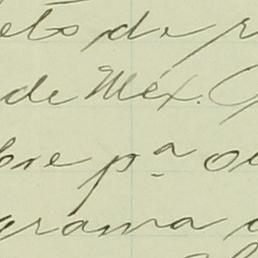 eto de
de Méx.
bre pa
grama